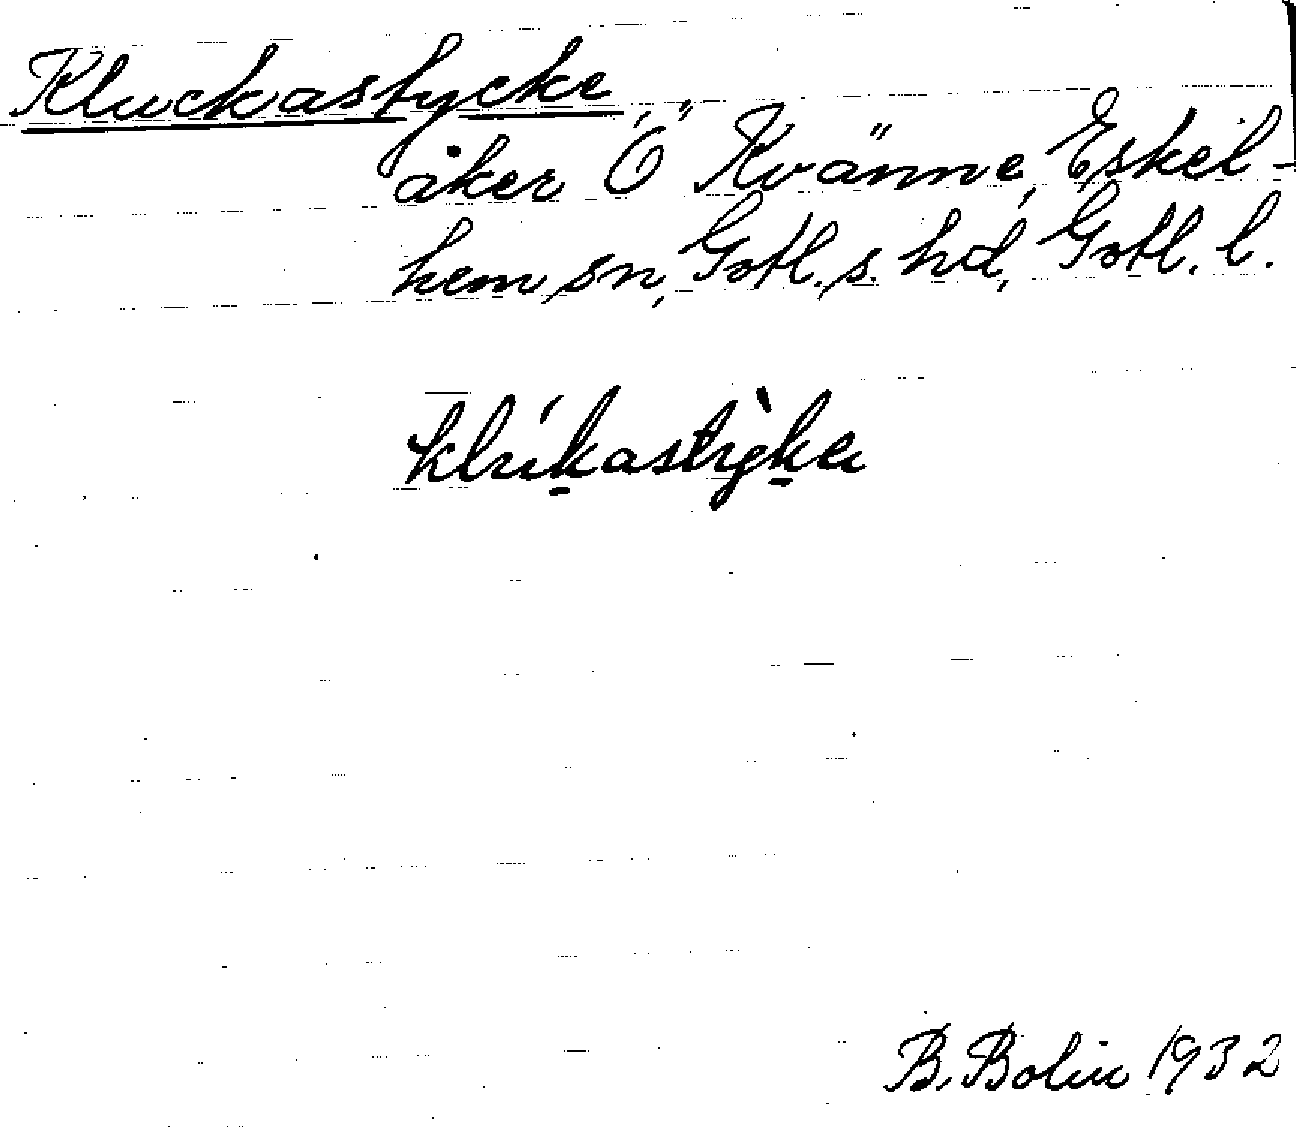 Kluckastycke,
åker Ö Kvänne, Eskel-
hem sn, Gotl. s. hd, Gotl. l.
klúk̠astỳk̠a
B. Bolin 1932